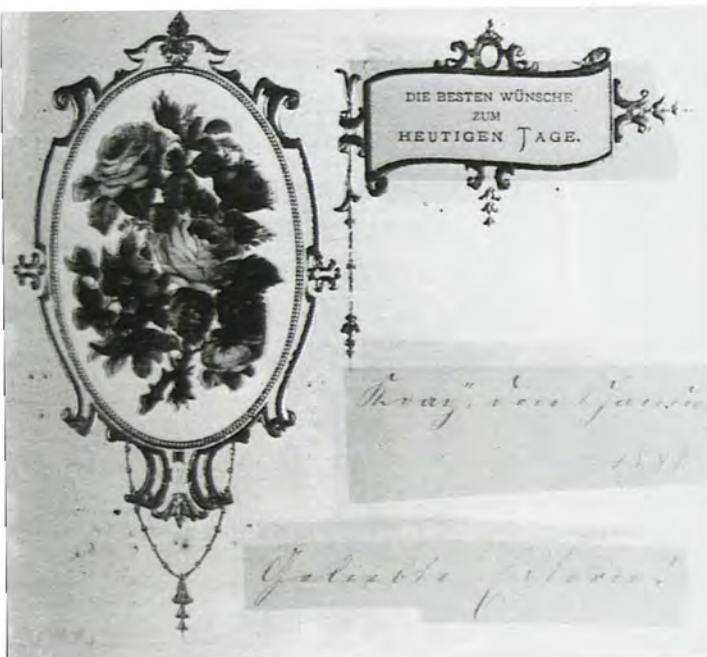 DIE BESTEN WÜNSCHE
ZUM
HEUTIGEN TAGE.
Kray, den 1 Janua
Geliebte Eltern!